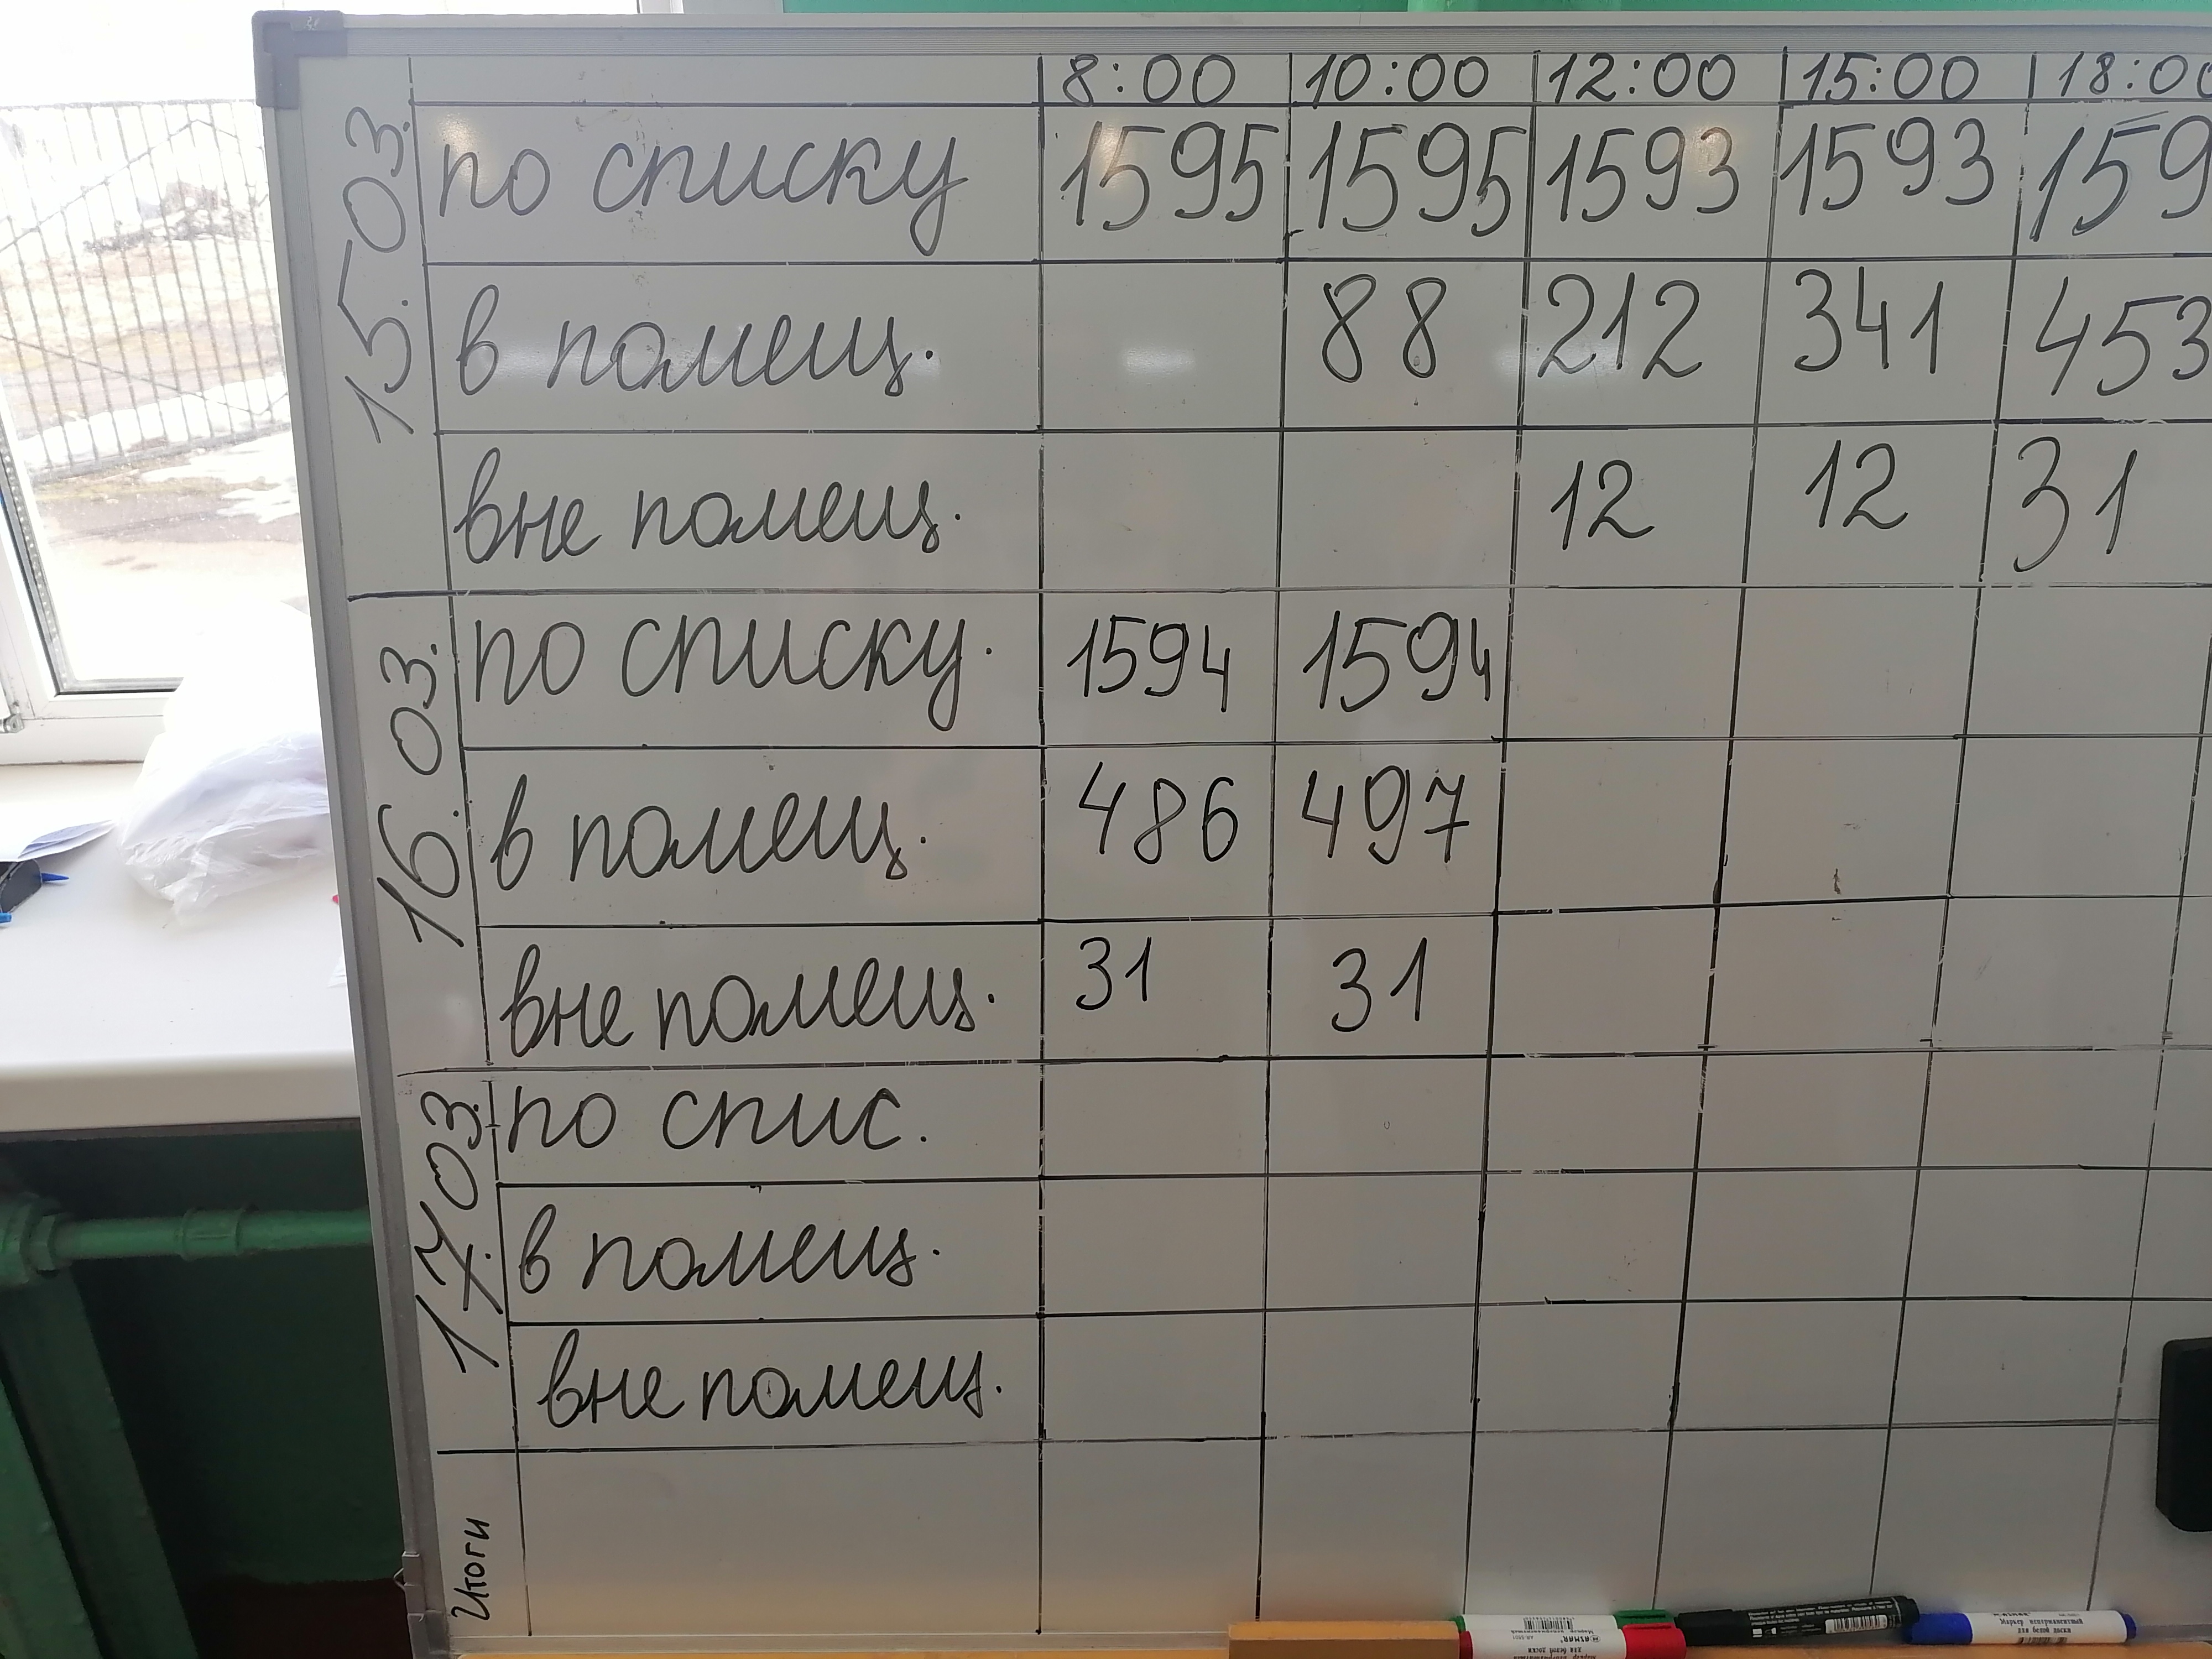 8:00 10:00 12:00 15:00 18:00
15.03.
по списку 1595 1595 1593 1593 159
в помещ. 88 212 341 453
вне помещ. 12 12 31
16.03.
по списку. 1594 1594
в помещ. 486 497
вне помещ. 31 31
17.03.
по спис.
в помещ.
вне помещ.
Итоги
HASMAR
для белой доски
Маркер перманентный
для белой доски